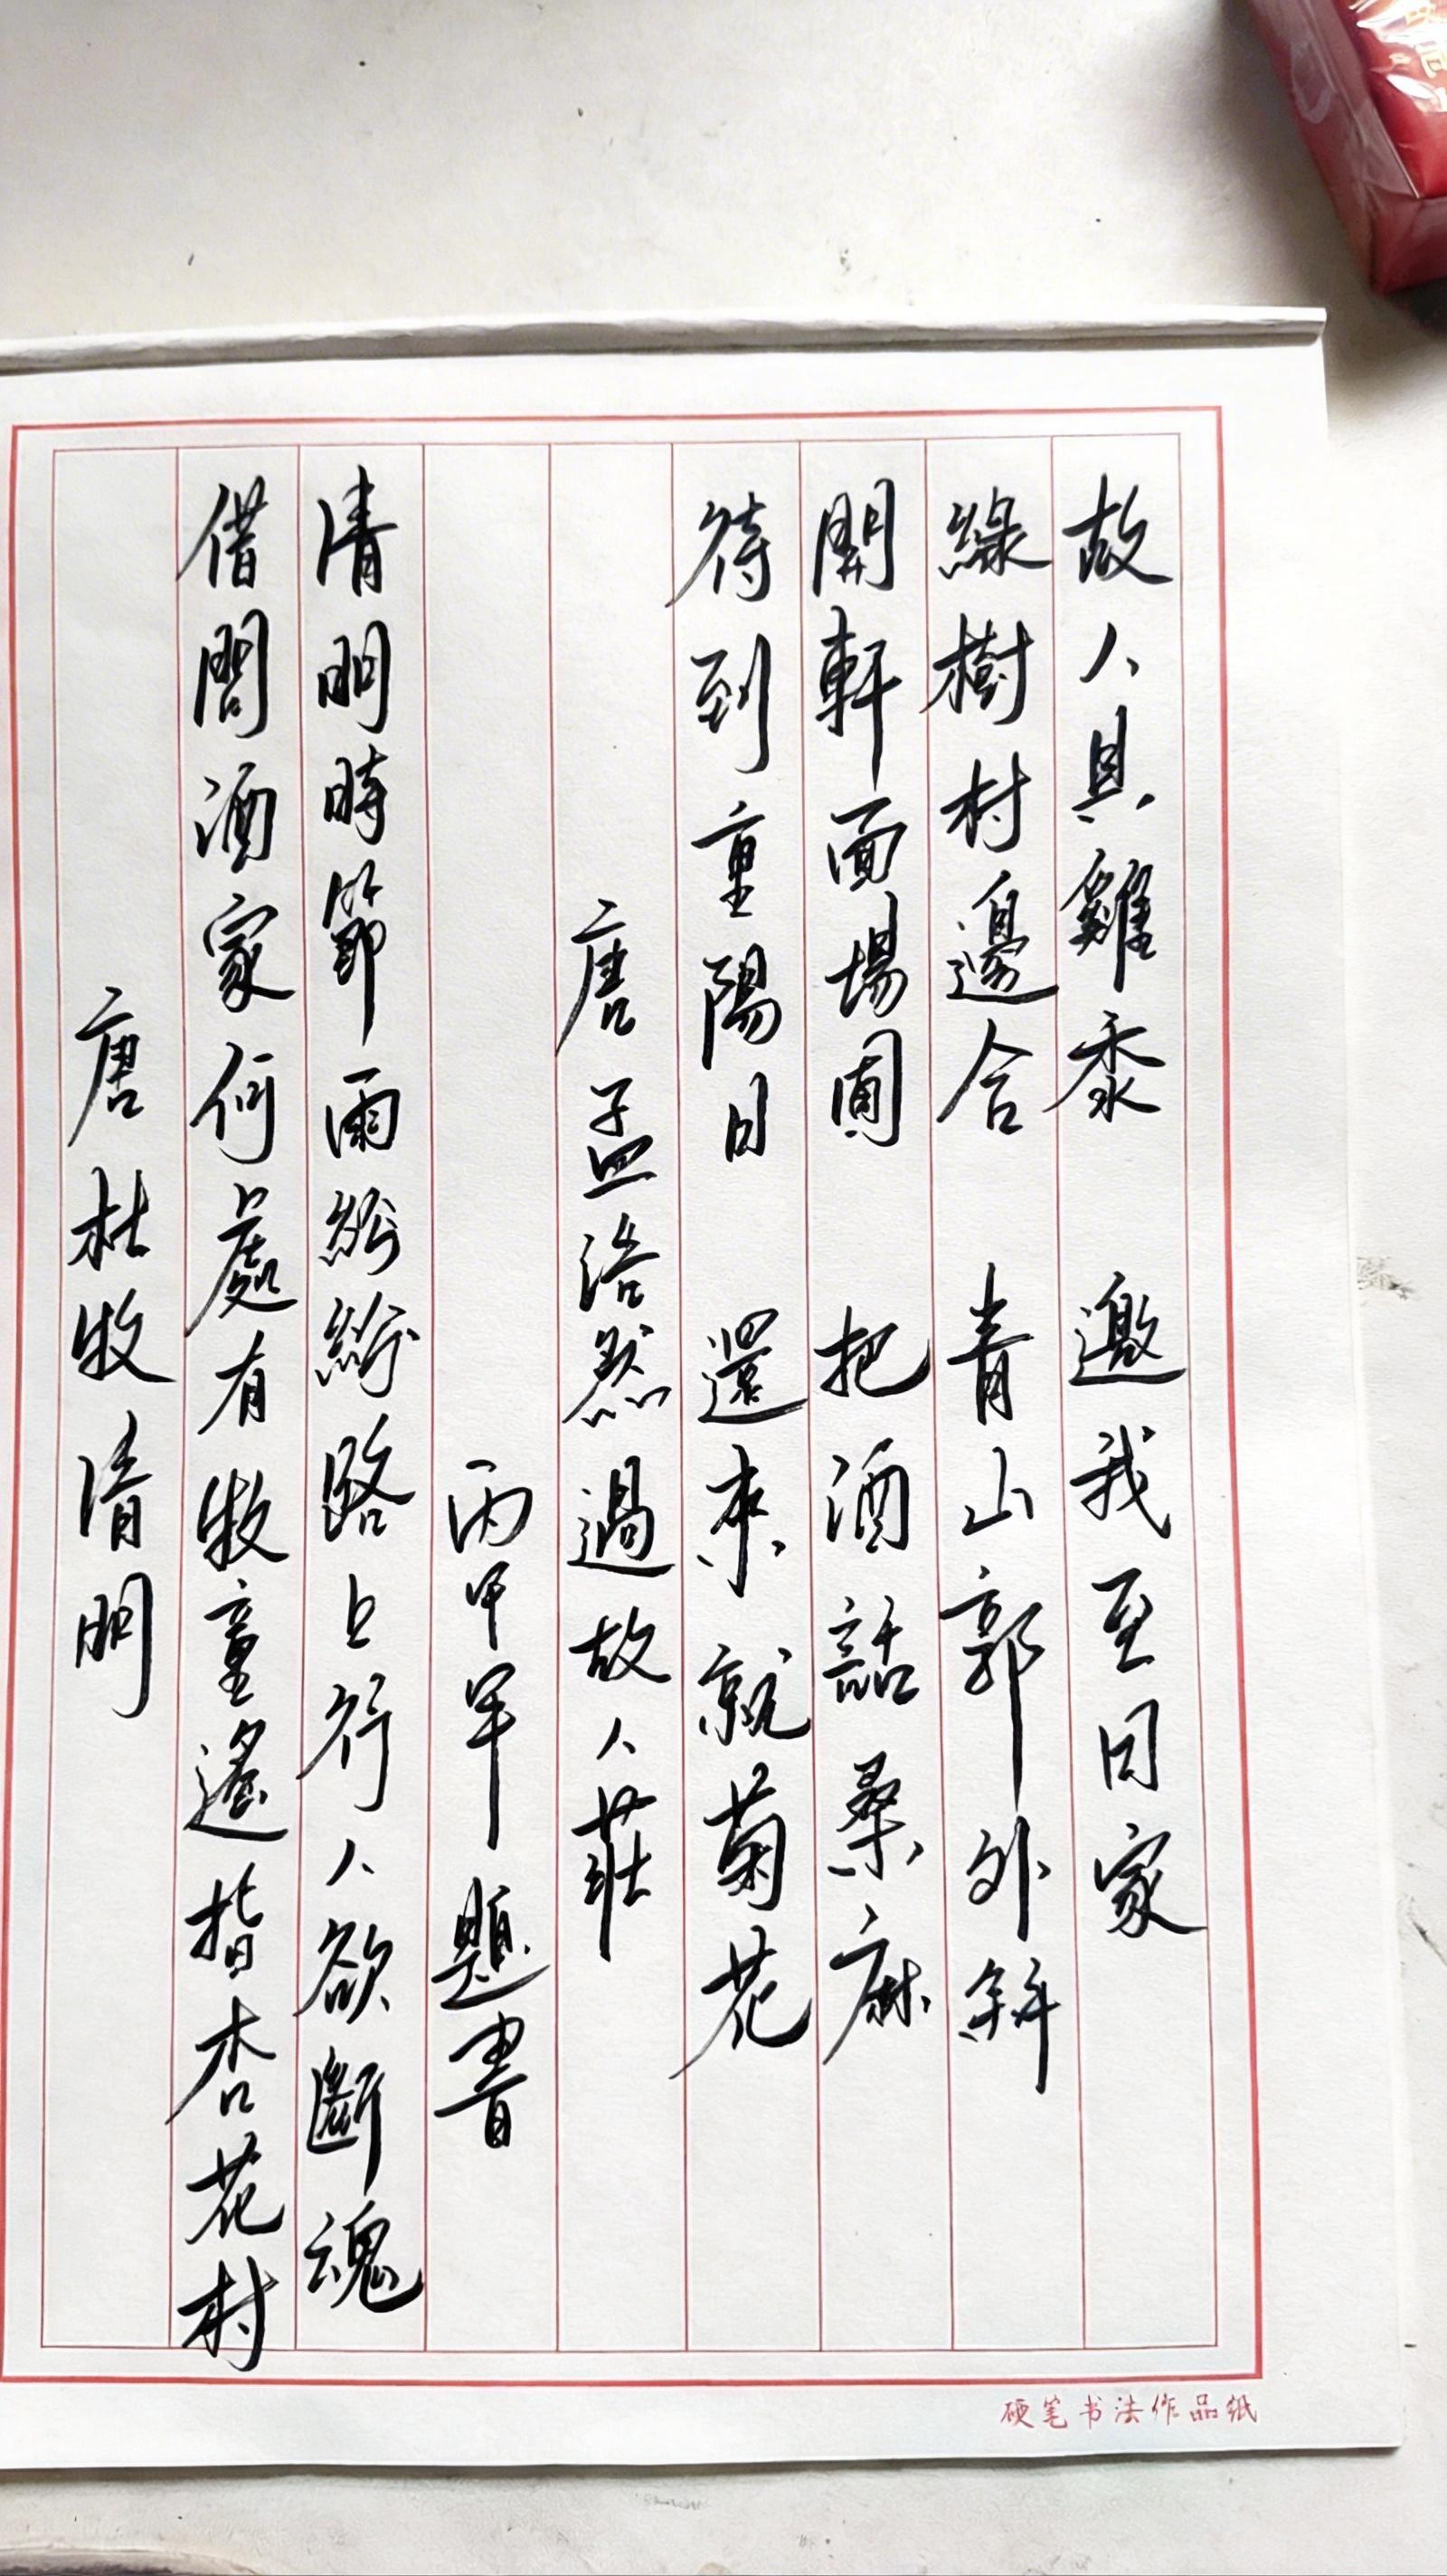 故人具雞黍 邀我至田家
綠樹村邊合 青山郭外斜
開軒面場圃 把酒話桑麻
待到重陽日 還來就菊花
唐孟浩然過故人莊
丙甲年題書
清明時節雨紛紛路上行人欲斷魂
借問酒家何處有牧童遙指杏花村
唐杜牧清明
硬笔书法作品纸